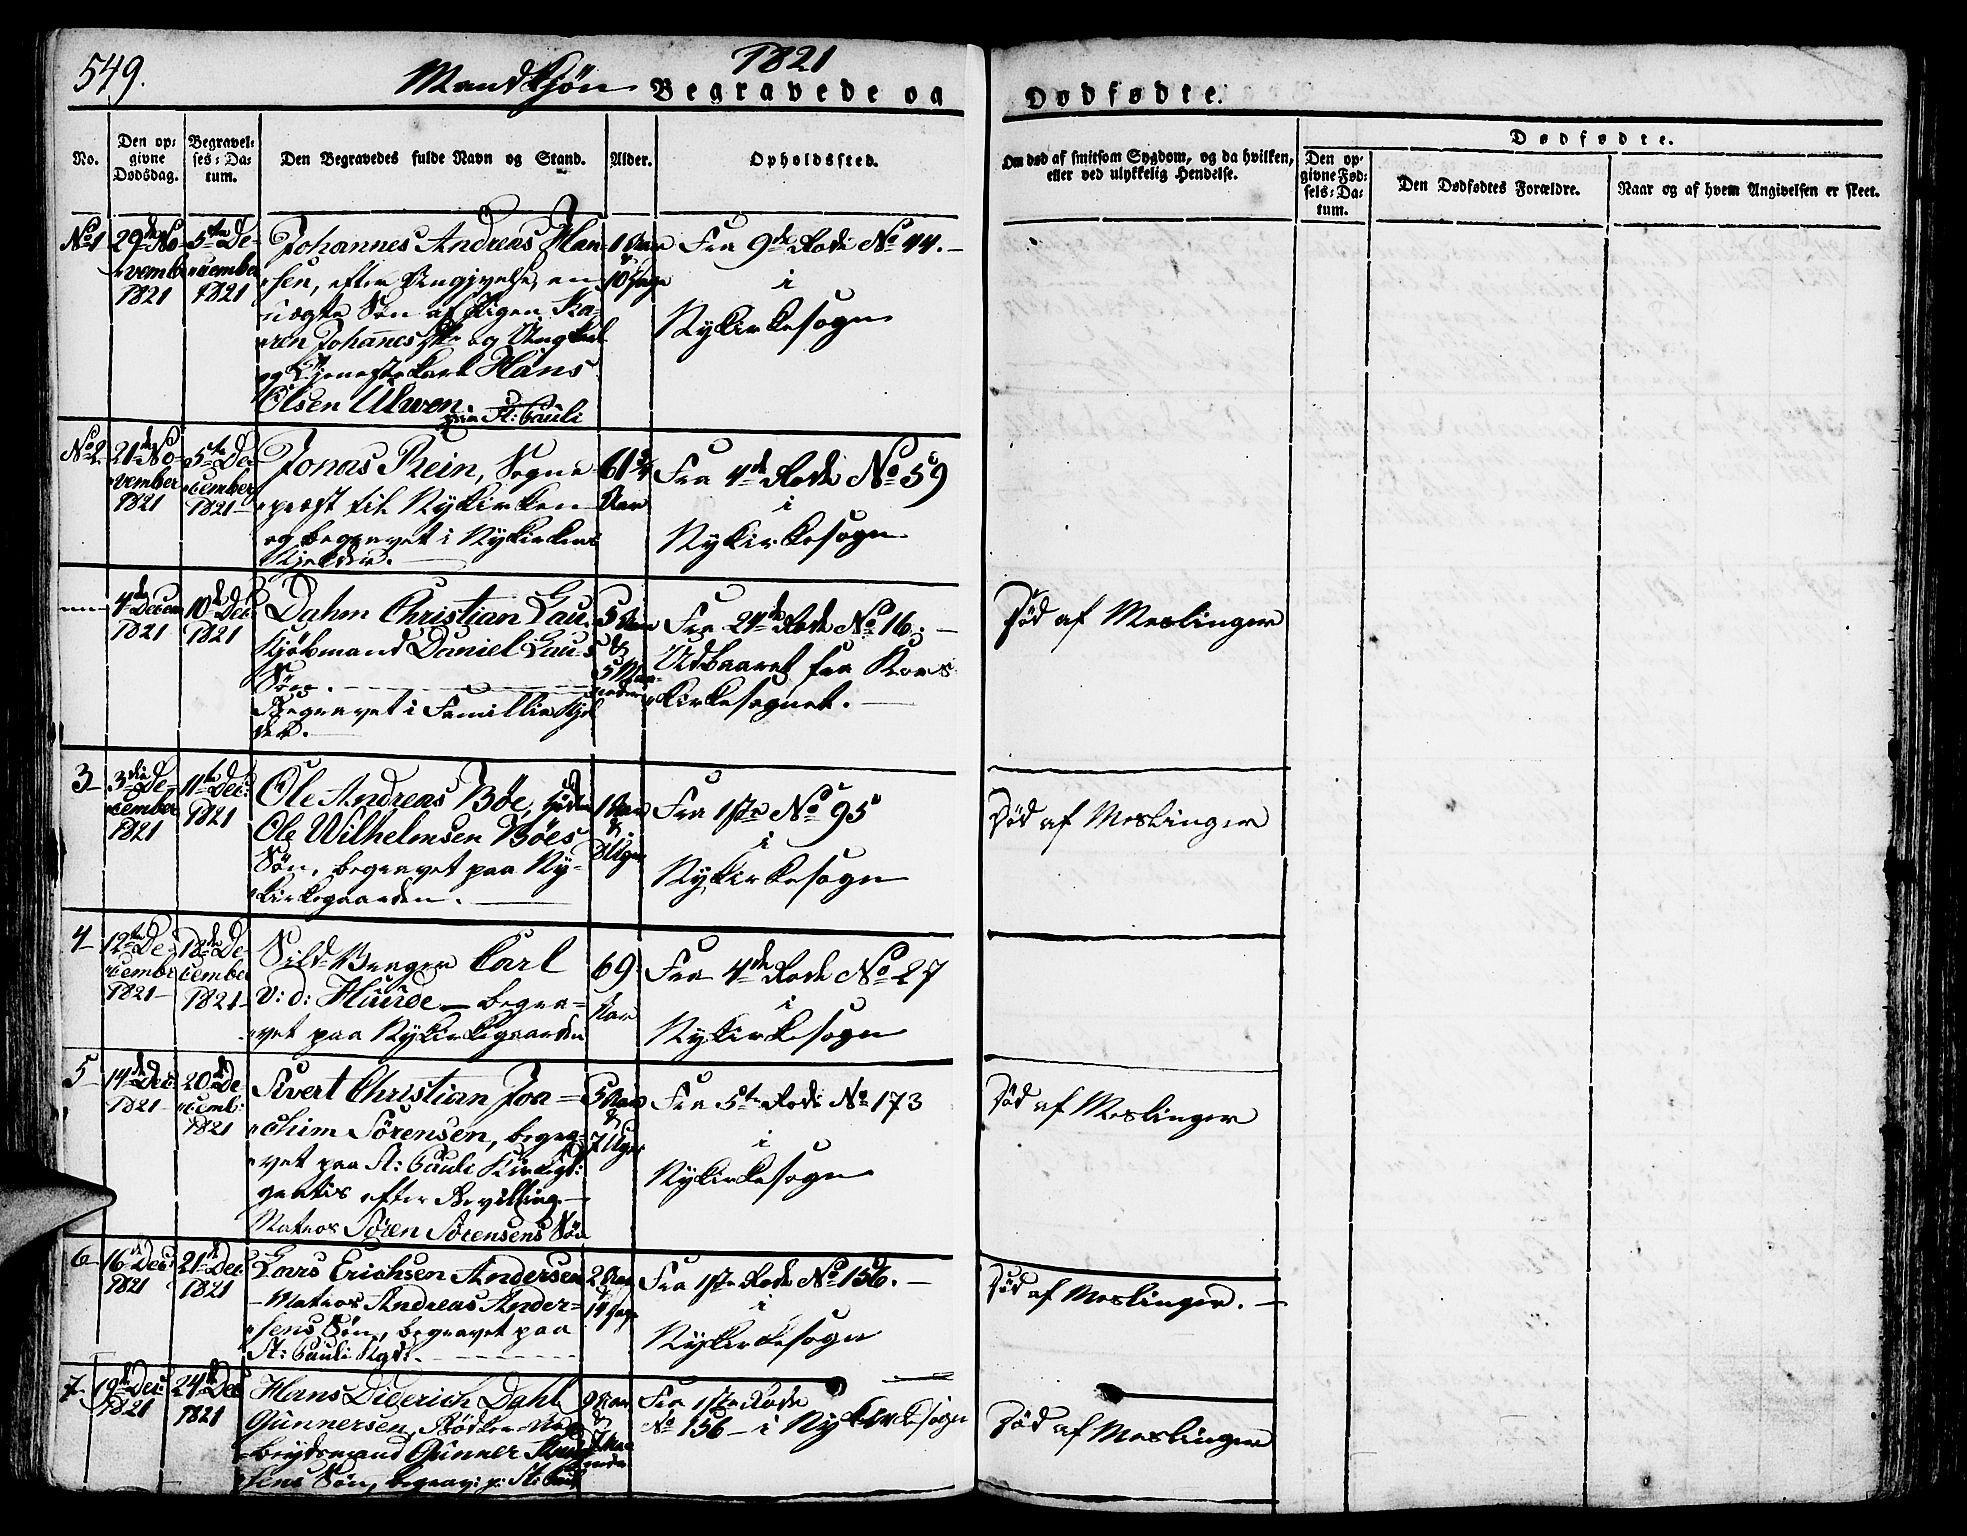 549.
1821
Mandkjøn Begravede og Dødfødte.
No.
Den op-
givne
Dødsdag.
Begravel-
ses-Da-
tum.
Den Begravedes fulde Navn og Stand.
Alder.
Opholdssted.
Om død af smitsom Sygdom, og da hvilken,
eller ved ulykkelig Hendelse.
Dødfødte.
Den op-
givne Fød-
sels-Da-
tum.
Den Dødfødtes Forældre.
Naar og af hvem Angivelsen er skeet.
No 1
29de No-
vemb
1821
5te De-
cember
1821
Johannes Andreas Han-
sen, efter Angivelse, en
uægte Søn af Pigen Ka-
ren Johannes og Ungkarl
og Tjenestekarl Hans
Olsen Ulven
paa St: Pauli
1 Aar
10 Dage
Fra 9de Rode No 44.
i
Nykirkesogn
No 2
21de No-
vember
1821
5te De-
cember
1821
Jonas Rein, Sogne-
præst til Nykirken
og begravet i Nykirkens
Kjelder.
61¾
Aar
Fra 4de Rode No 59
i
Nykirkesogn
4de Decem
1821
10de Dec:
1821
Dahm Christian Gau-
Kjøbmand Daniel
Søn.
Begravet i Familie Kjel
der.
5 Aar
&
5 Maa-
neder
Fra 21de Rode No 16.
Udbaaret fra Kors
kirkesognet.
Død af Meslinger
3
3die De-
cember
1821
11te Dec:
1821
Ole Andreas Bøe,
Ole Wilhelmsen Bøes
Søn, begravet paa Ny-
kirkegaarden.
1 Aar
&
Uger
Fra 1ste No 95
i
Nykirkesogn
Død af Meslinger
4
12te De-
cemb
1821
18de De-
cember
1821
Sild-Vrager Carl
v: d: Huude begra-
vet paa Nykirkegaarden
69
Aar
Fra 4de Rode No 27
i
Nykirkesogn
5
14de Dec:
1821
20de De-
cemb:
1821
Sivert Christian Joa-
chim Sørensen, begra-
vet paa St: Pauli Kirkegd:
gratis efter Bevilling
Matros Søren Sørensens Søn
5 Aar
&
7 Uger
Fra 5te Rode No 173
i
Nykirkesogn
Død af Meslinger
6
16de Dec:
1821
21de Dec:
1821
Lars Erichsen Andersen
Matros Andreas Ander-
sens Søn, begravet paa
St: Pauli Kgd:
2 Aar
14 Dage
Fra 1ste Rode No 156.
i
Nykirkesogn
Død af Meslinger.
7
19de Dec:
1821
24de Dec
1821
Hans Diderich Dahl
Gunnersen, Bødker
Gunner
sens Søn, begrav: p: St: Pauli
Aar
&
Fra 1ste Rode
No 156 i Nykirkesogn
Død af Meslinger